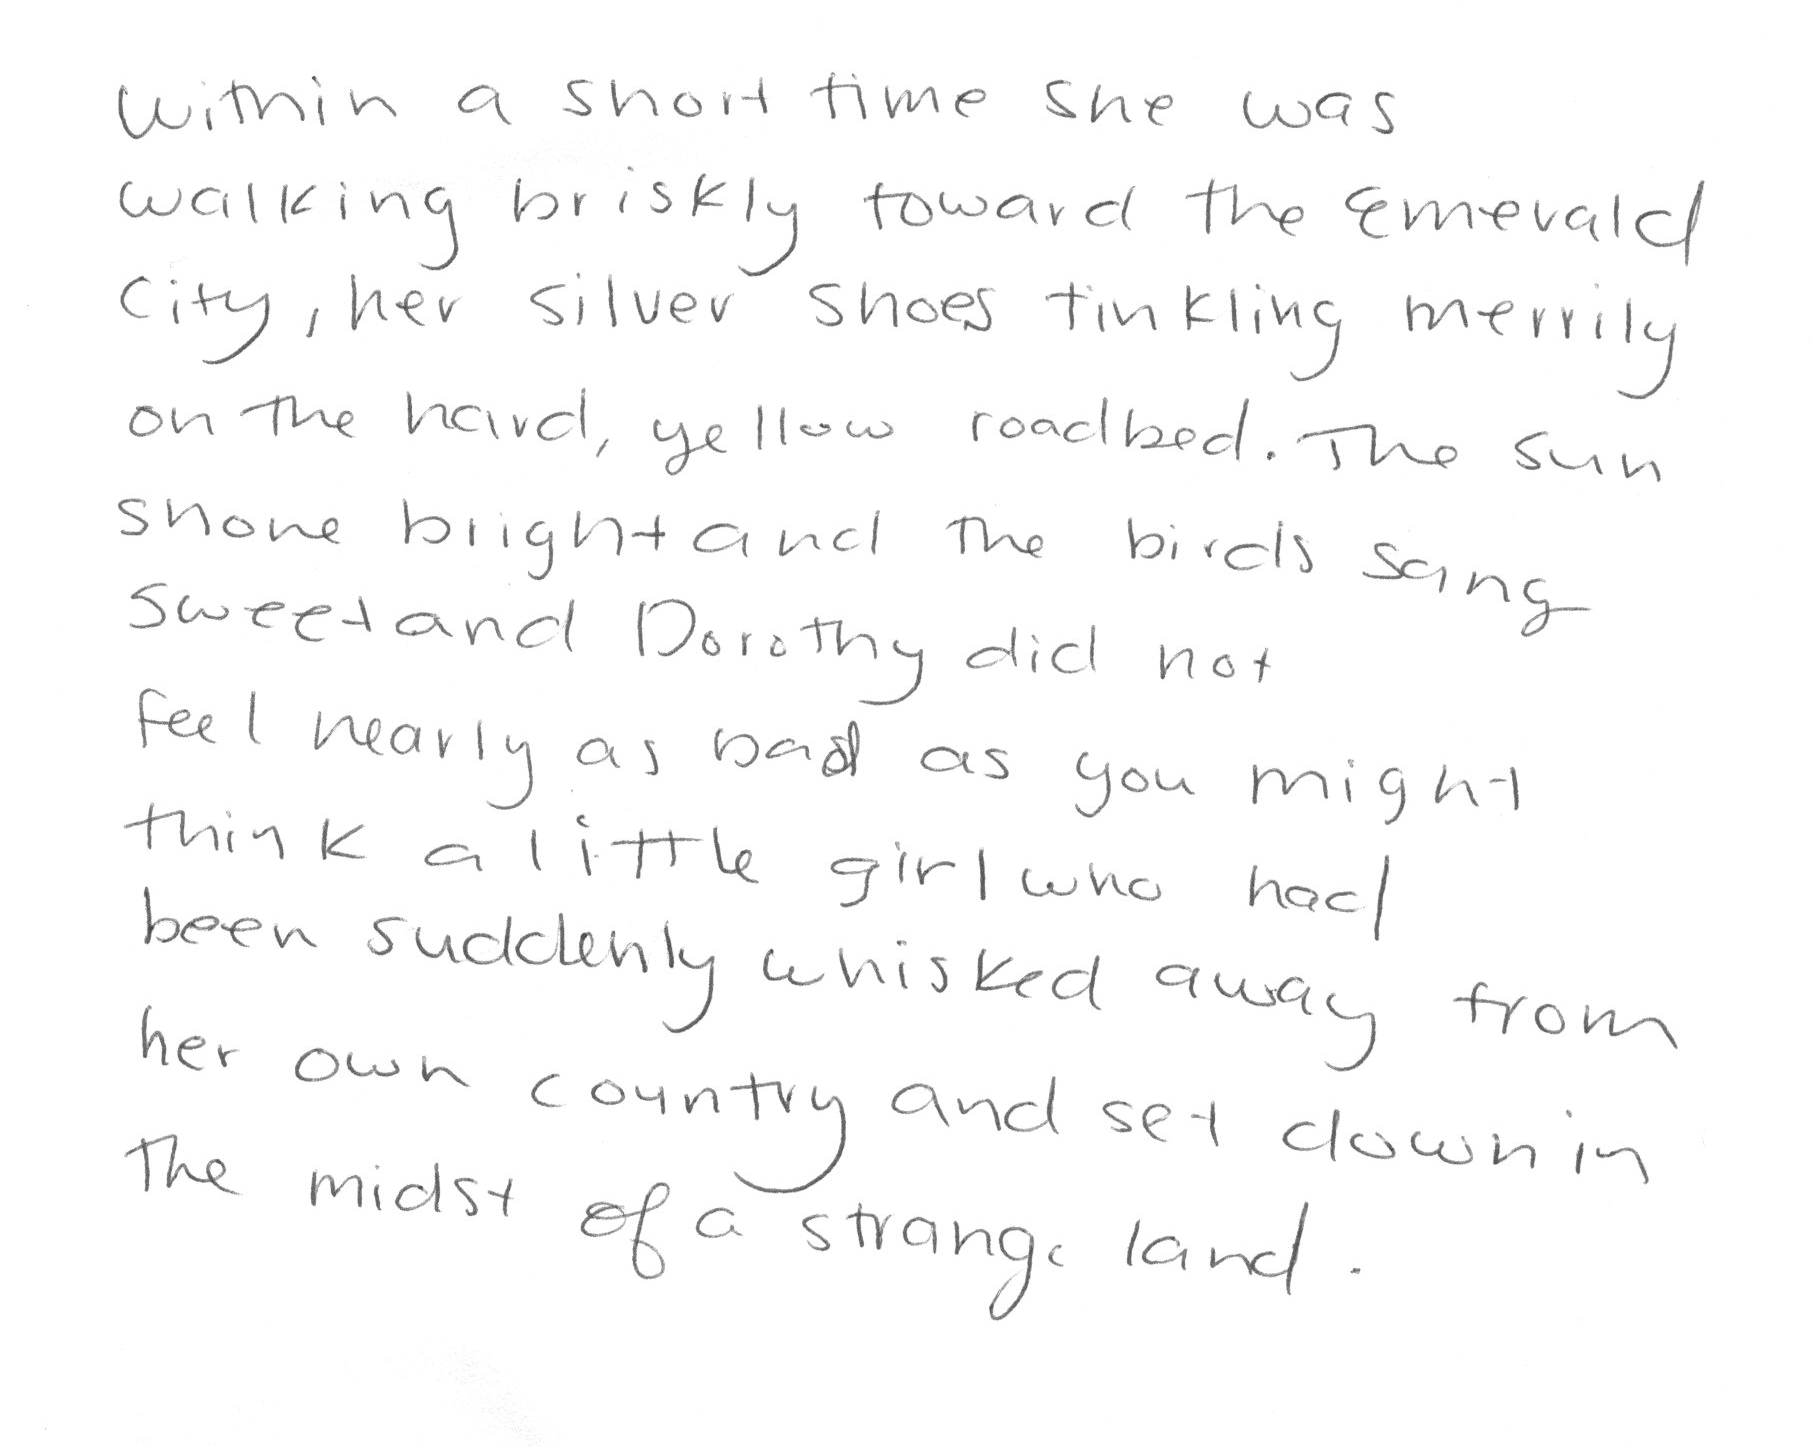 Within a short time she was
walking briskly toward the Emerald
City, her silver shoes tinkling merrily
on the hard, yellow roadbed. The sun
shone bright and the birds sang
sweet and Dorothy did not
feel nearly as bad as you might
think a little girl who had
been suddenly whisked away from
her own country and set down in
the midst of a strange land.